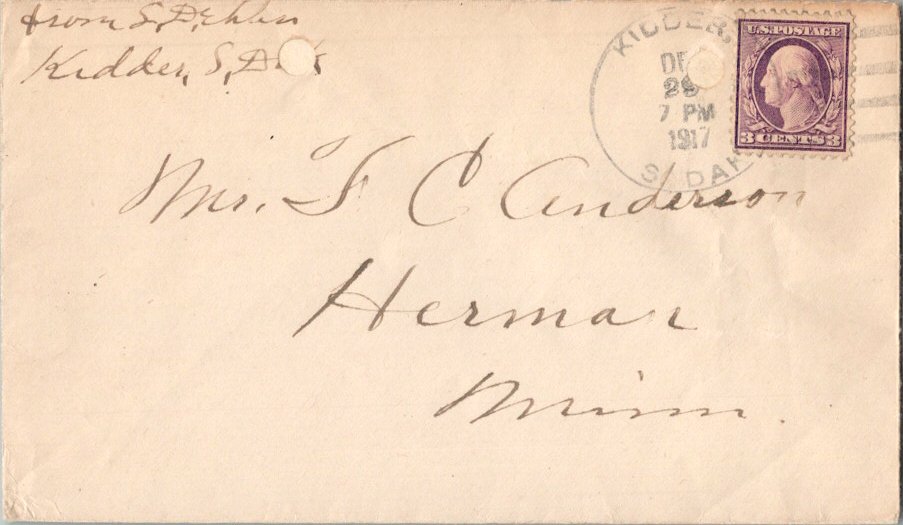 from S. Dehlin
Kidder, S, Dak
KIDDER,
DE
29
7 PM
1917
S. DAK
U.S. POSTAGE
3 CENTS 3
Mr. F C Anderson
Herman
Minn.